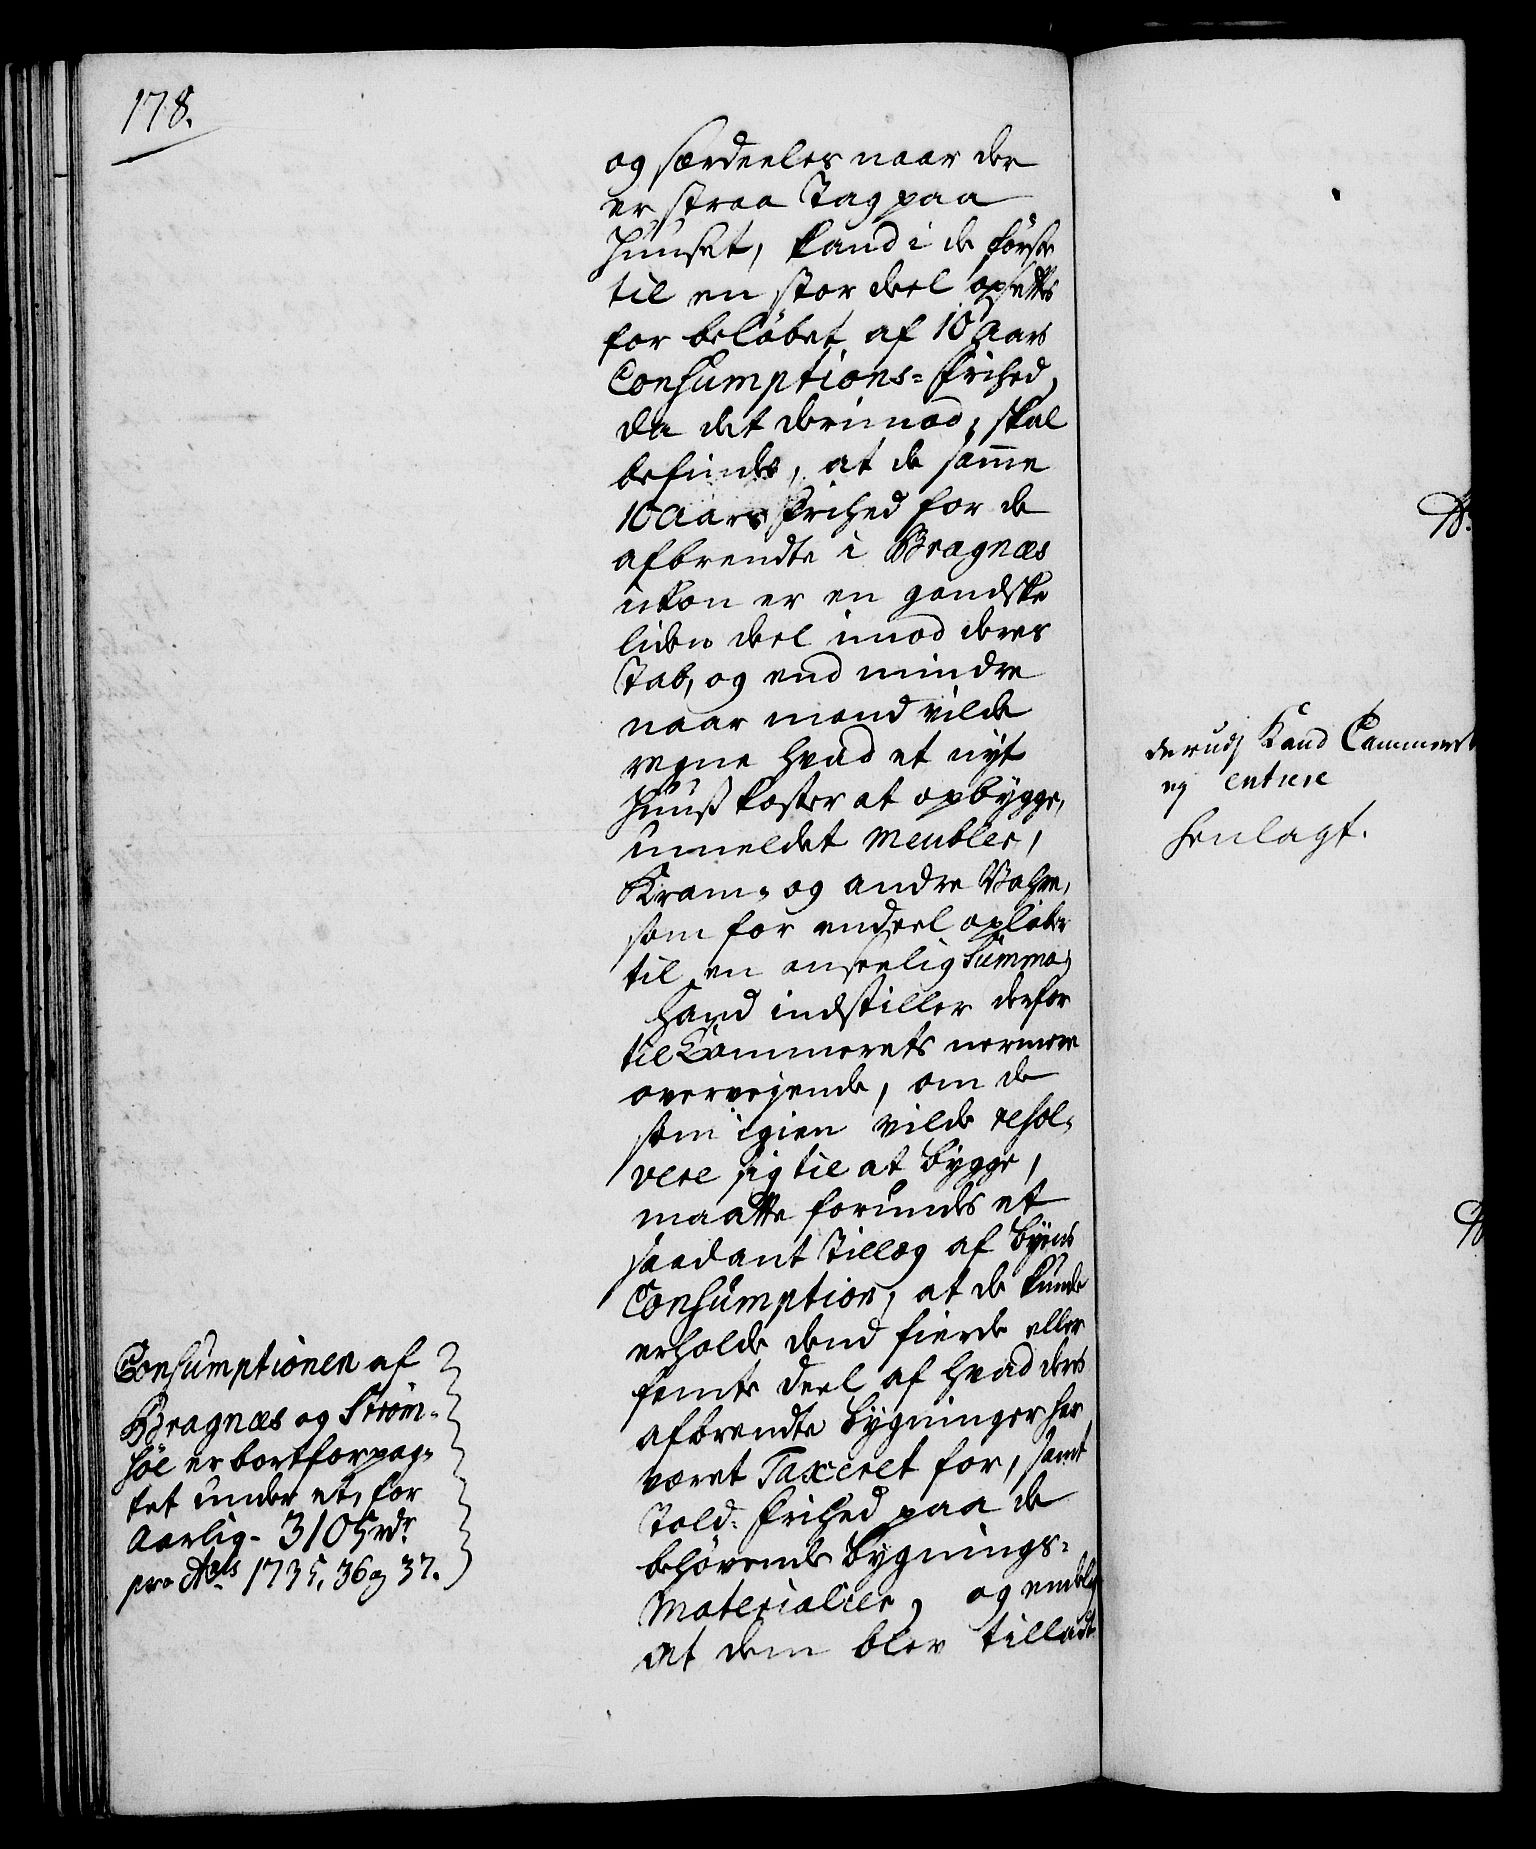 178.
og særdeeles naar der
er straa Tag paa
Huuset, kand i de første
til en stor deel opsættes
for beløbet af 10 Aars
Consumptions-Frihed,
da det derimod, skal
befindes, at de samme
10 Aars Frihed for de
afbrendte i Bragnæs
ickon er en gandske
liden deel imod deres
Tab, og end mindre
naar mand vilde
regne hvad et nyt
Huuss koster at opbygge,
Umeldet Meubler,
Kram- og andre Vahre,
som for endeel opløber
til en anseelig Summa,
Hand indstiller derfor
til Cammerets nermere
overvejende, om de
som igien vilde resol-
vere sig til at bygge,
maatte forundes et
saadant Tillæg af Byens
Consumption, at de kunde
erholde dend fierde eller
femte deel af hvad deres
afbrendte Bygninger har
været Taxeret for, samt
Told-Frihed paa de
behøvende Bygnings-
Materialier, og endelig
at dem blev tilladt
Consumptionen af
Bragnæs og Strøm-
søe er bortforpag-
tet under et, for
Aarlig - 3105 rdr
pro Aols 1735, 36 og 37.
Kand Cammeret
ej entrere
henlagt.